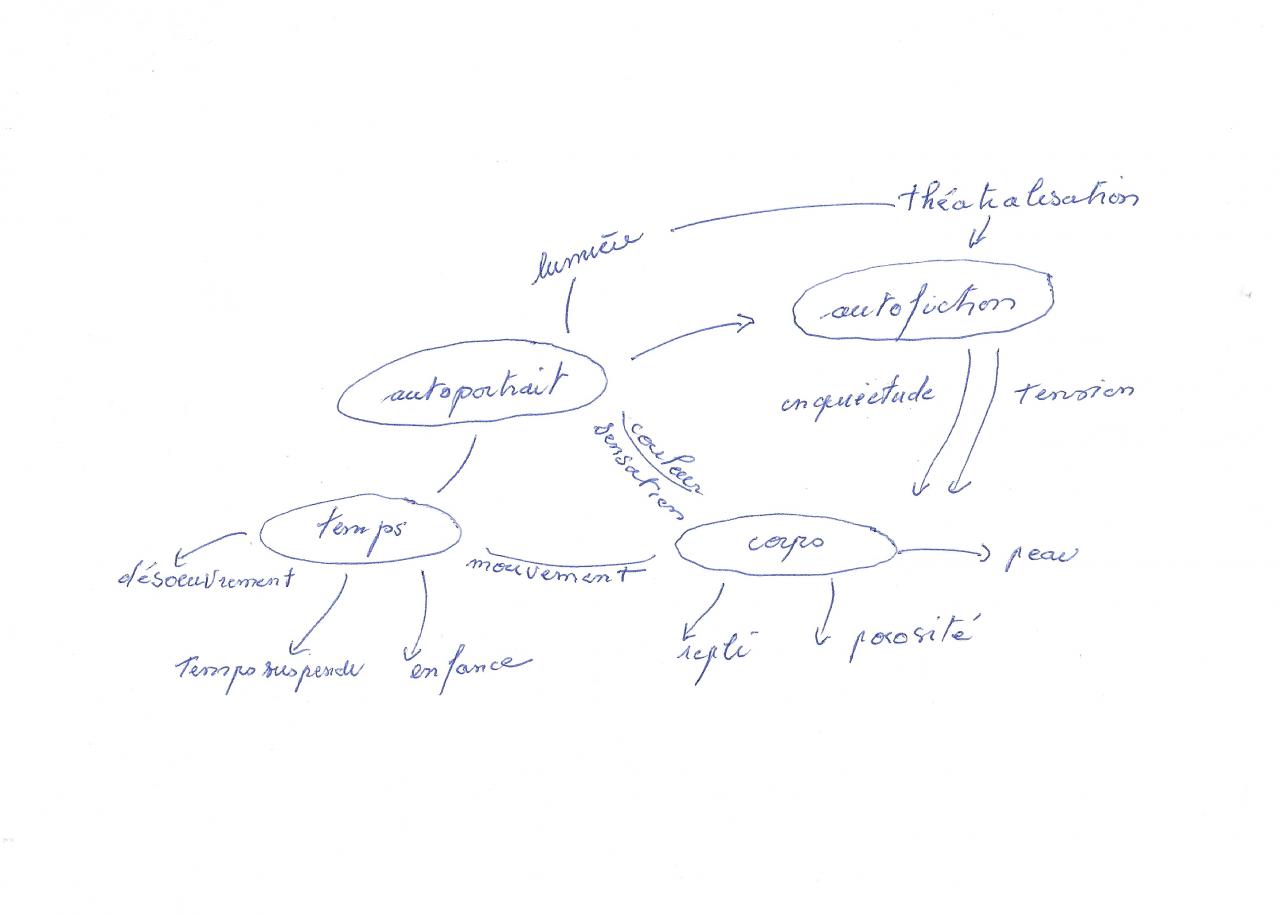 théatralisation
lumière
autofiction
autoportrait
inquiétude
tension
couleur
sensation
temps
corps
peau
mouvement
désoeuvrement
repli
porosité
temps suspendu
enfance